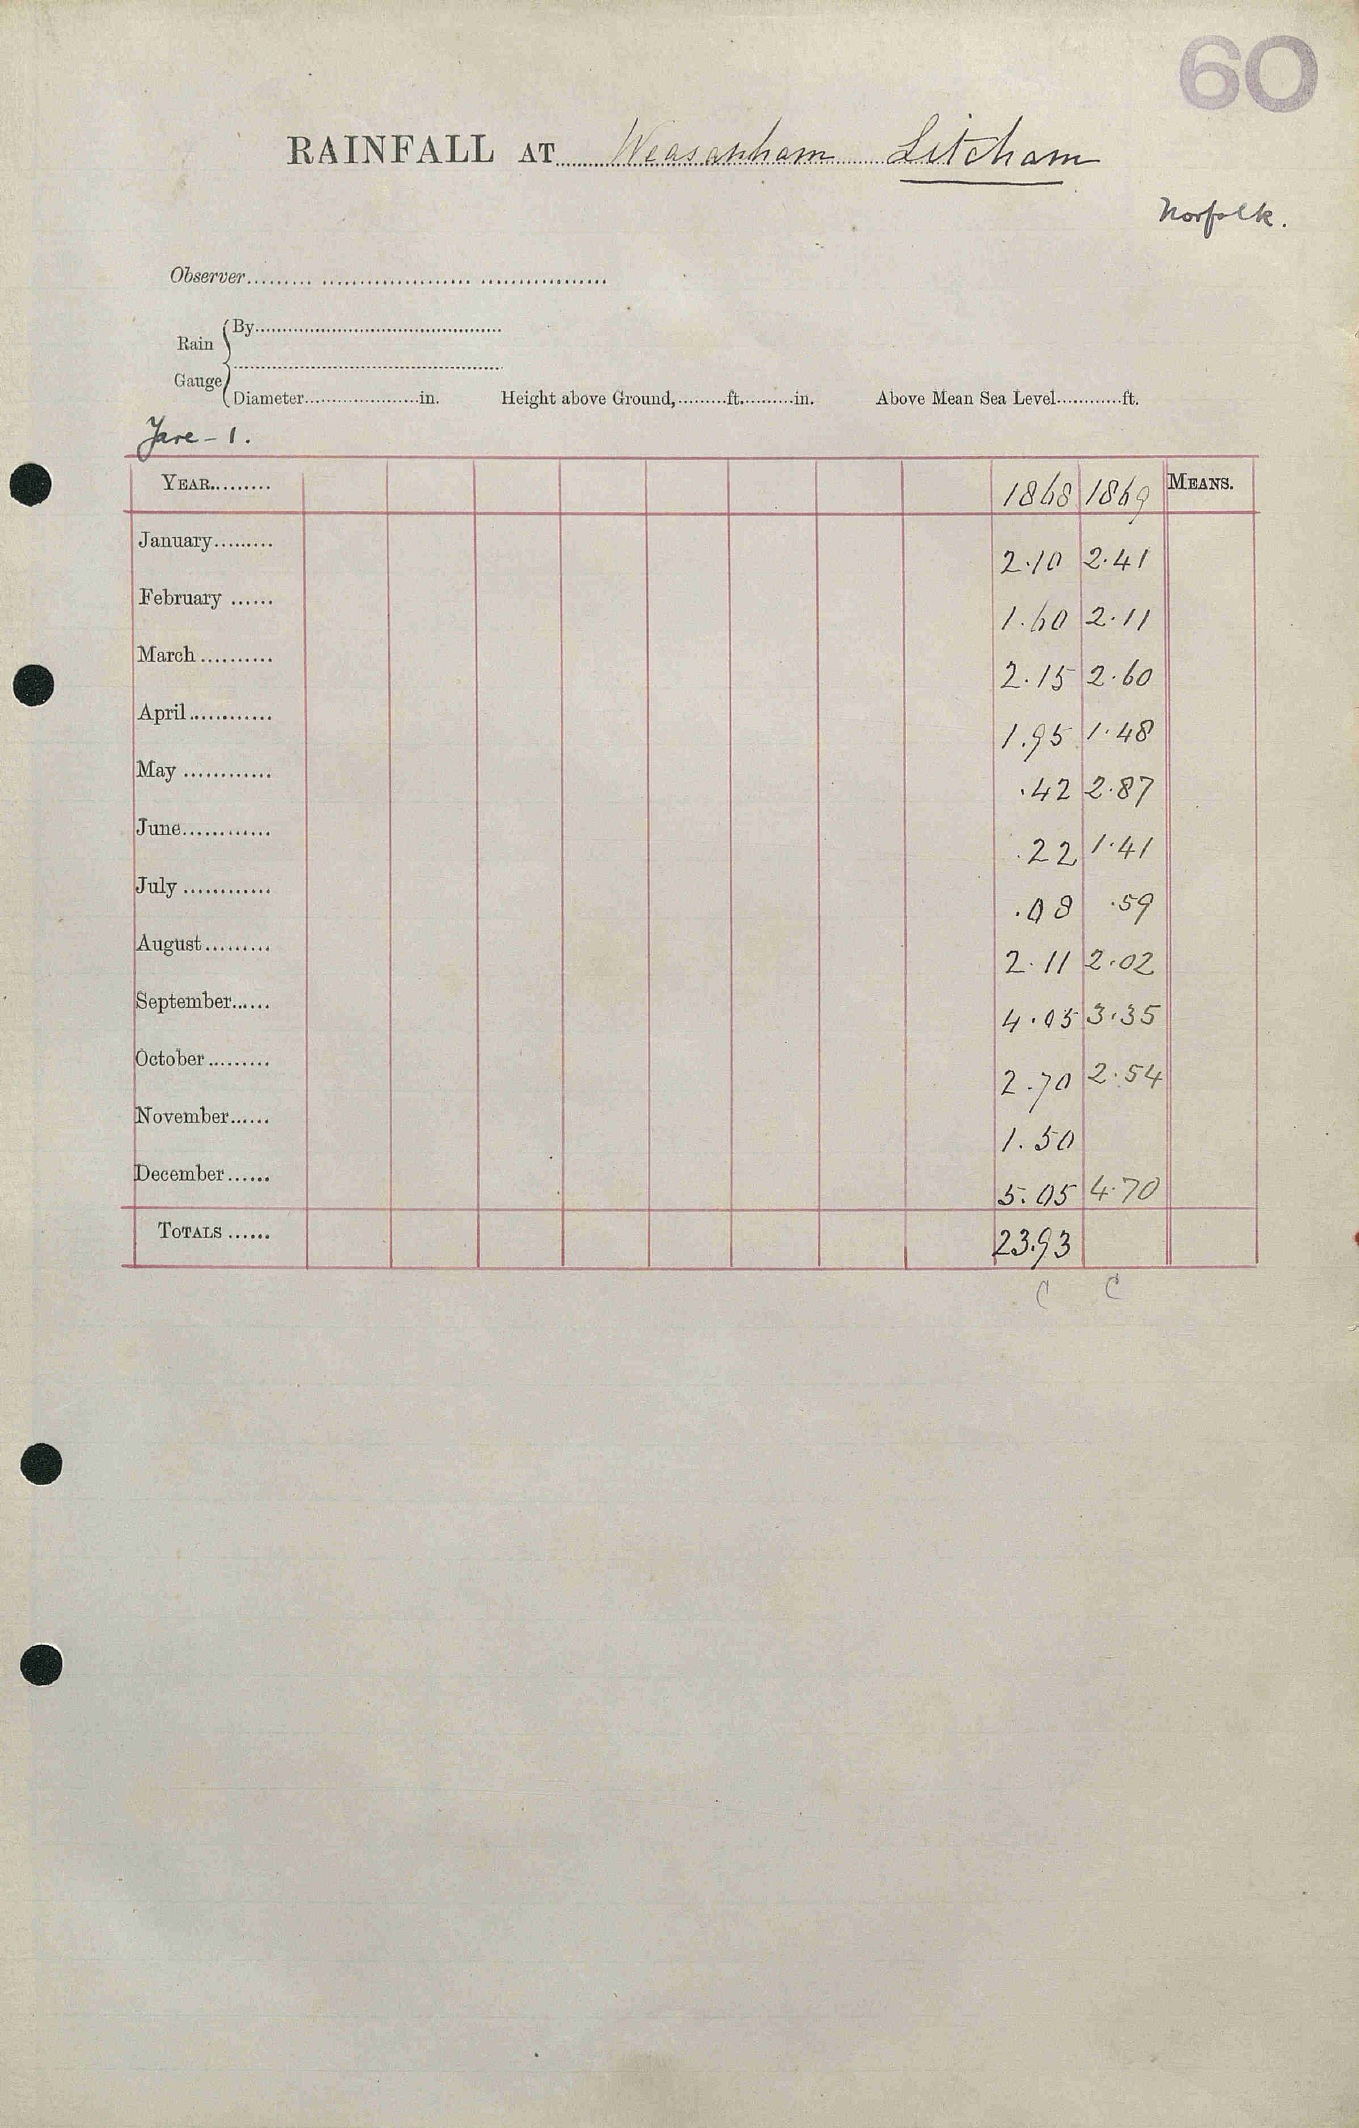 60
RAINFALL AT Weasenham Litcham
Norfolk.
Observer
Rain Gauge
By
Diameter in. Height above Ground, ft. in. Above Mean Sea Level ft.
Yare - 1.
YEAR 1868 1869 MEANS.
January 2.10 2.41
February 1.60 2.11
March 2.15 2.60
April 1.95 1.48
May .42 2.87
June .22 1.41
July .08 .59
August 2.11 2.02
September 4.05 3.35
October 2.70 2.54
November 1.50
December 5.05 4.70
TOTALS 23.93
C C